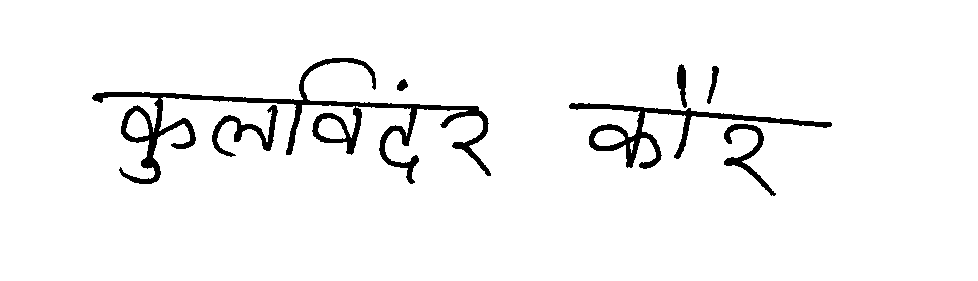 कुलविदंर कौर